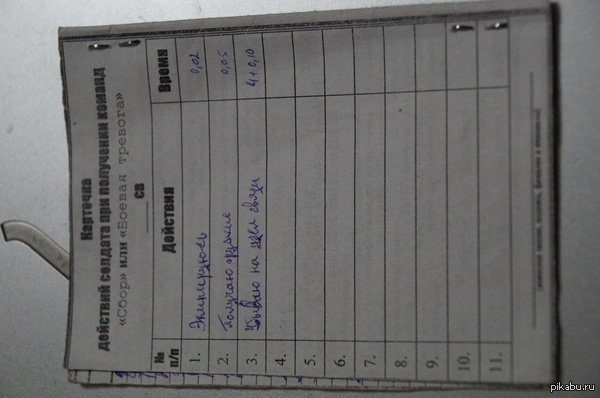 Карточка
действий солдата при получении команд
«Сбор» или «Боевая тревога»
СВ
№ п/п Действия Время
1. Экипируюсь 0,02
2. Получаю оружие 0,05
3. Убываю на узел связи Ч+0,10
4.
5.
6.
7.
8.
9.
10.
11.
pikabu.ru